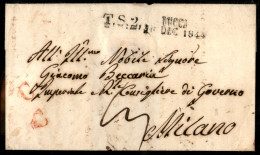 T.S.2.
LUCCA
DEC. 1844
All' Ill.mo Nobile Signore
Giacomo Beccaria
Imperiale R. Consigliere di Governo
Milano